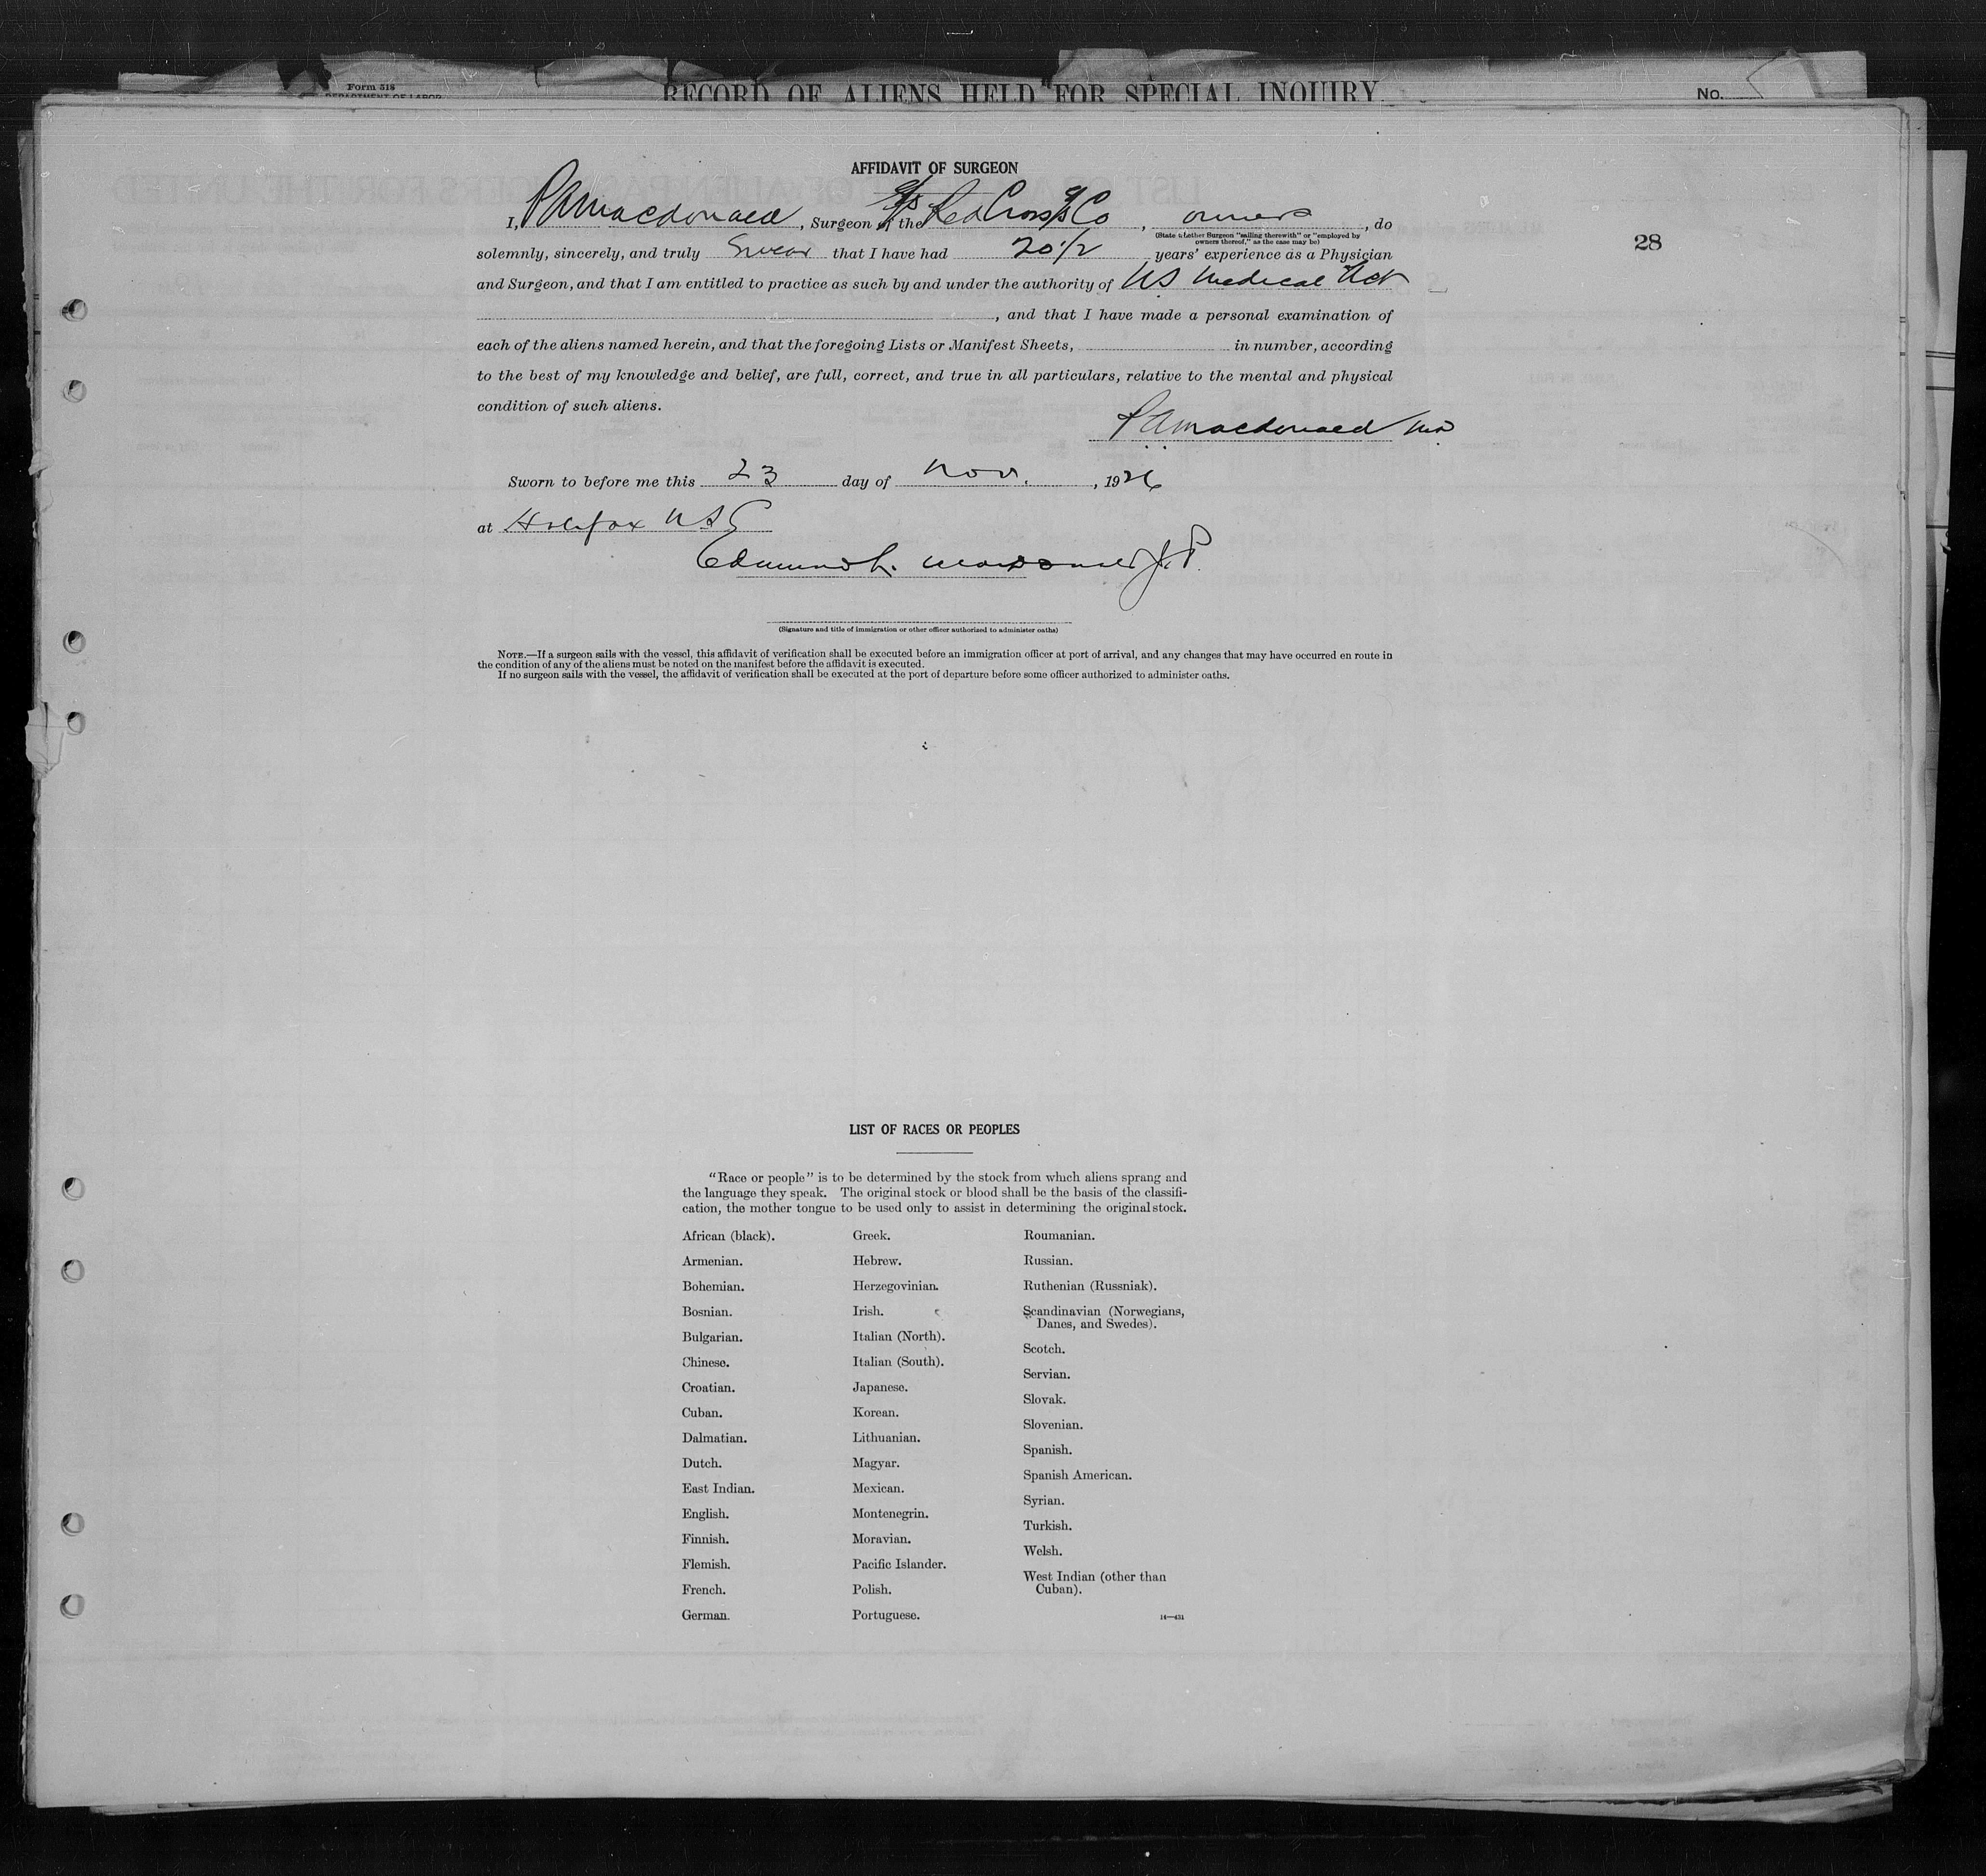 Form 518
DEPARTMENT OF LABOR
RECORD OF ALIENS HELD FOR SPECIAL INQUIRY
No.
AFFIDAVIT OF SURGEON
I, PAMacdonald, Surgeon of the Red Cross S/S Co, owners, do
(State whether Surgeon "sailing therewith" or "employed by
owners thereof," as the case may be)
28
solemnly, sincerely, and truly Swear that I have had 20 1/2 years' experience as a Physician
and Surgeon, and that I am entitled to practice as such by and under the authority of NS Medical Act
, and that I have made a personal examination of
each of the aliens named herein, and that the foregoing Lists or Manifest Sheets, in number, according
to the best of my knowledge and belief, are full, correct, and true in all particulars, relative to the mental and physical
condition of such aliens.
PAMacdonald MD
Sworn to before me this 23 day of Nov., 1926
at Halifax NS
Edmund J.P.
(Signature and title of immigration or other officer authorized to administer oaths)
NOTE.—If a surgeon sails with the vessel, this affidavit of verification shall be executed before an immigration officer at port of arrival, and any changes that may have occurred en route in
the condition of any of the aliens must be noted on the manifest before the affidavit is executed.
If no surgeon sails with the vessel, the affidavit of verification shall be executed at the port of departure before some officer authorized to administer oaths.
LIST OF RACES OR PEOPLES
"Race or people" is to be determined by the stock from which aliens sprang and
the language they speak. The original stock or blood shall be the basis of the classifi-
cation, the mother tongue to be used only to assist in determining the original stock.
African (black).
Armenian.
Bohemian.
Bosnian.
Bulgarian.
Chinese.
Croatian.
Cuban.
Dalmatian.
Dutch.
East Indian.
English.
Finnish.
Flemish.
French.
German.
Greek.
Hebrew.
Herzegovinian.
Irish.
Italian (North).
Italian (South).
Japanese.
Korean.
Lithuanian.
Magyar.
Mexican.
Montenegrin.
Moravian.
Pacific Islander.
Polish.
Portuguese.
Roumanian.
Russian.
Ruthenian (Russniak).
Scandinavian (Norwegians,
Danes, and Swedes).
Scotch.
Servian.
Slovak.
Slovenian.
Spanish.
Spanish American.
Syrian.
Turkish.
Welsh.
West Indian (other than
Cuban).
14—431